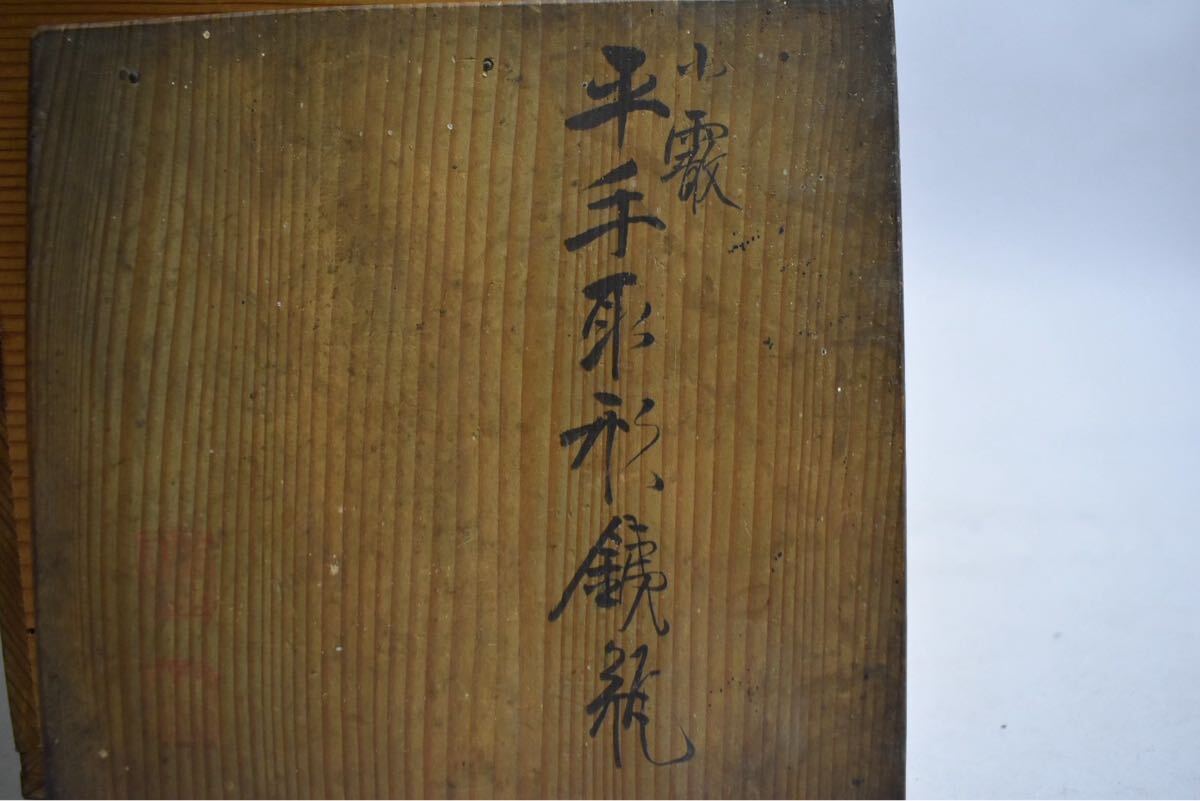 小霰
平手取形鐵瓶